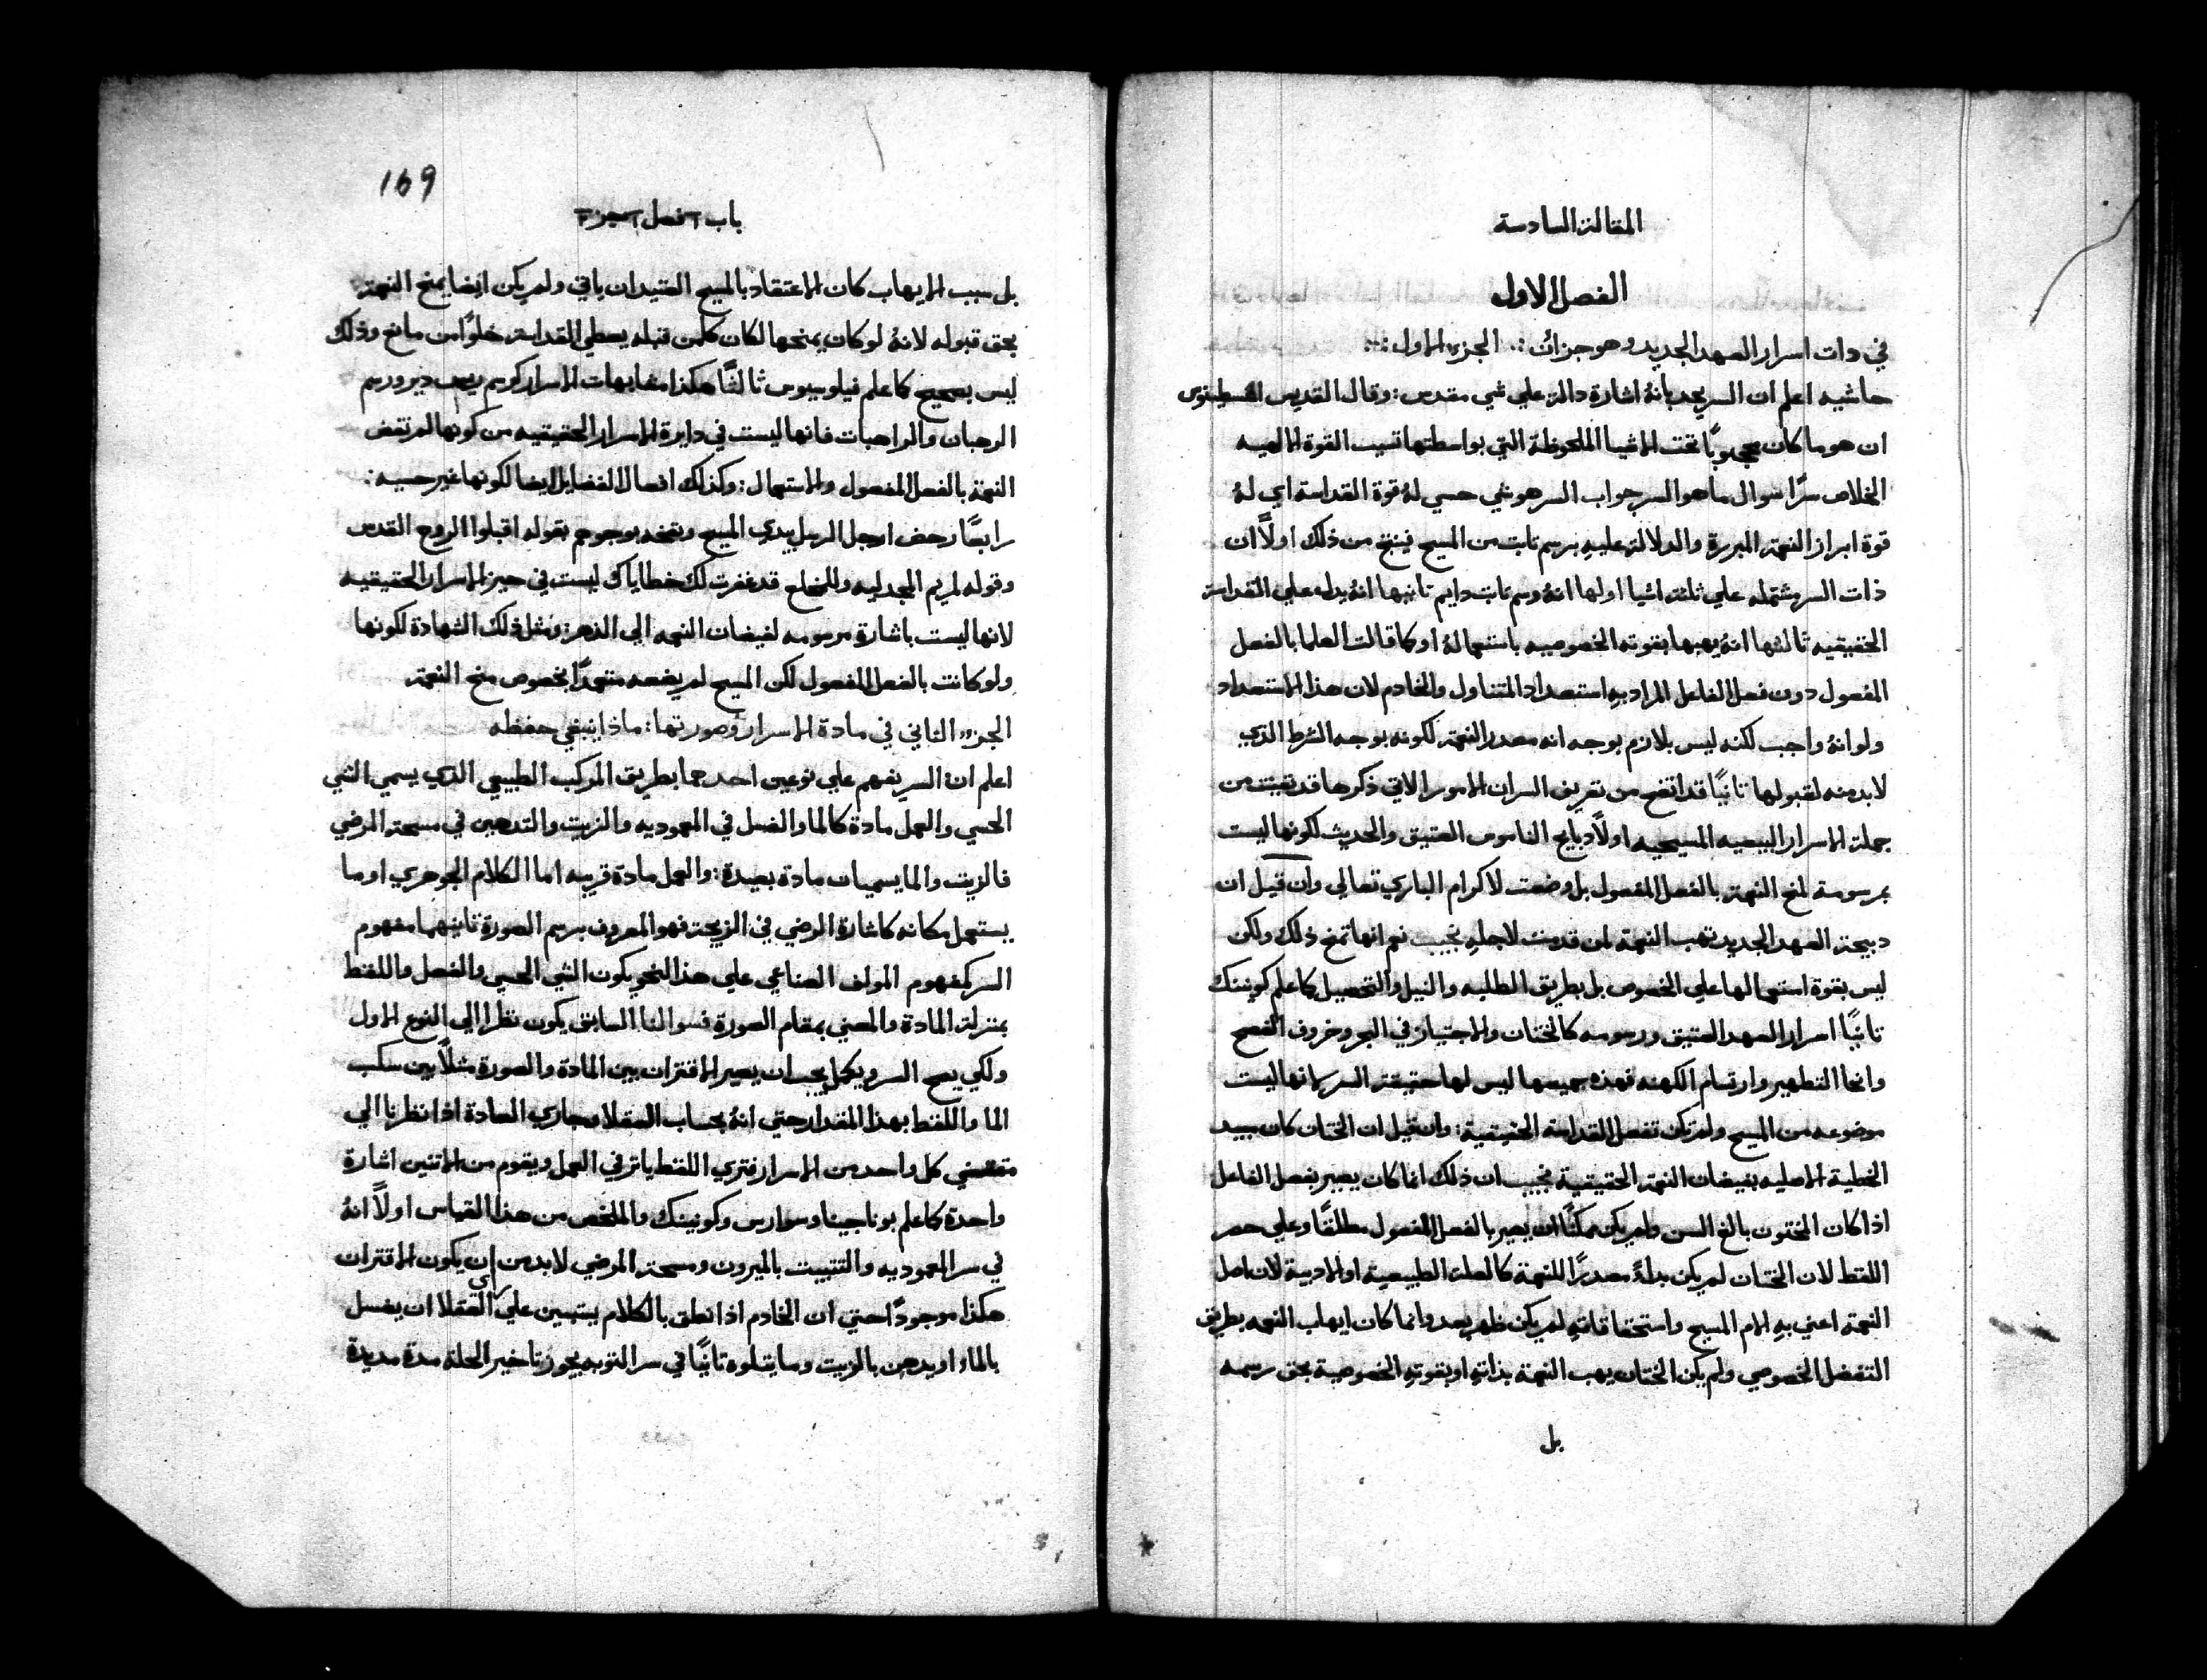 المقالة السادسة
الفصل الاول
في دات اسرار العهد الجديد وهو جزان :. الجزء الاول :.
حاشيه اعلم ان السر يحد بانهُ اشارة دالة علي شي مقدس : وقال القديس اغسطينوس
ان هو ما كان محجوبًا تحت الاشيا الملحوظة التي بواسطتها تسبب القوة الالهيه
الخلاص سرًا سوال ما هو السر جواب السر هو شي حسي لهُ قوة القداسة اي لهُ
قوة ابراز النعمة المبررة والدلالة عليهِ برسم تابت من المسيح فينتج من ذلك اولاً ان
ذات السر مشتمله علي ثلثة اشيا اولها انهُ رسم تابت دايم تانيها انهُ يدل علي القداسة
الحقيقيه تالثها انهُ يهبها بقوته الخصوصيه باستعمالهُ او كما قالت العلما بالفعل
المفعول دون فعل الفاعل المراد بهِ استعداد المتناول والخادم لان هذا الاستعداد
ولو انهُ واجب لكنه ليس بلازم بوجه انه مصدر النعمة لكونه بوجه الشرط الذي
لا بد منه لقبولها تانيًا قد اتضح من تعريف السر ان الامور الاتي ذكرها قد نفيت من
جملة الاسرار البيعيه المسيحيه اولاً دبايح الناموس العتيق والحديث لكونها ليست
بمرسومة لمنح النعمة بالفعل المفعول بل وضعت لاكرام الباري تعالي وان قيل ان
دبيحة العهد الجديد تهب النعمة لمن قدمت لاجلهِ نجيب نعم انها تمنح ذلك ولكن
ليس بقوة استعمالها علي الخصوص بل بطريق الطلبه والنيل والتحصيل كما علم كونينك
تانيًا اسرار العهد العتيق ورسومه كالختان والاجتياز في البحر وخروف الفصح
وانحا التطهير وارتسام الكهنه فهذه جميعها ليس لها حقيقة السر لانها ليست
موضوعه من المسيح ولم تكن تفعل القداسة الحقيقية : وان قيل ان الختان كان يبيد
الخطية الاصليه بفيضان النعمة الحقيقية نجيب ان ذلك انما كان يصير بفعل الفاعل
اذا كان المختون بالغ السن ولم يكن ممكنًا ان يصير بالفعل المفعول مطلقًا وعلي حصر
اللفظ لان الختان لم يكن بداءً مصدرًا للنعمة كالعلت الطبيعية او الادبية لان اصل
النعمة اعني بهِ الام المسيح واستحقاقاتهِ لم يكن ظهر بعد وانما كان ايهاب النعمه بطريق
التفضل الخصوصي ولم يكن الختان يهب النعمة بذاتهِ او بقوته الخصوصية بحق رسمه
بل
169
باب فصل جزء
بل سبب الايهاب كان الاعتقاد بالمسيح العتيد ان ياتي ولم يكن ايضا يمنح النعمة
بحق قبوله لانهُ لو كان يمنحها لكان كلمن قبله يعطي القداسة خلوًا من مانع وذلك
ليس بصحيح كما علم فيلوسيوس ثالثًا هكذا مشابهات الاسرار كرسم ريس دير ورسم
الرهبان والراهبات فانها ليست في دايرة الاسرار الحقيقيه من كونها لم تفض
النعمة بالفعل المفعول والاستعمال : وكذلك افعال الفضايل ايضا لكونها غير حسيه :
رابعًا رحض ارجل الرسل بيدي المسيح ونفخه بوجوههم بقوله اقبلوا الروح القدس
وقوله لمريم المجدليه وللمخلع قد غفرت لك خطاياك ليست في حيز الاسرار الحقيقيه
لانها ليست باشارة مرسومه لفيضان النعمه الي الدهر : ومثل ذلك الشهادة لكونها
ولو كانت بالفعل المفعول لكن المسيح لم يضعه متعمدًا بخصوص منح النعمة
الجزء الثاني في مادة الاسرار وصورتها : ماذا ينبغي حفظه
اعلم ان السر يفهم علي نوعين احدهما بطريق المركب الطبيعي الذي يسمي الشي
الحسي والعمل مادة كالما والغسل في المعموديه والزيت والتدهين في مسحة المرضي
فالزيت والما يسميان مادة بعيدة : والعمل مادة قريبه اما الكلام الجوهري او ما
يستعمل مكانه كاشارة الرضي في الزيجة فهو المعروف برسم الصورة تانيهما مفهوم
السر كمفهوم المولف الصناعي علي هذا النحو يكون الشي الحسي والفعل واللفظ
بمنزلة المادة والمعني بمقام الصورة فسوالنا السابق يكون نظرا الي النوع الاول
ولكي يصح السر ويكمل يجب ان يصير الاقتران بين المادة والصورة مثلاً بين سكب
الما واللفظ بهذا المقدار حتي انهُ بحساب العقلا ومجاري العادة اذا نظرنا الي
مقتضي كل واحد من الاسرار فتري اللفظ ياتر في العمل ويقوم من الاتنين اشارة
واحدة كما علم بوناجينا وسوارس وكونينك والملخص من هذا القياس اولاً انهُ
في سر المعموديه والتتبيت بالميرون ومسحة المرضي لا بد من ان يكون الاقتران
هكذا موجودًا حتي ان الخادم اذا نطق بالكلام يتبين علي راي العقلا ان يغسل
بالما او يدهن بالزيت وما يتلوه تانيًا في سر التوبه يجوز تاخير الحلة مدة مديدة